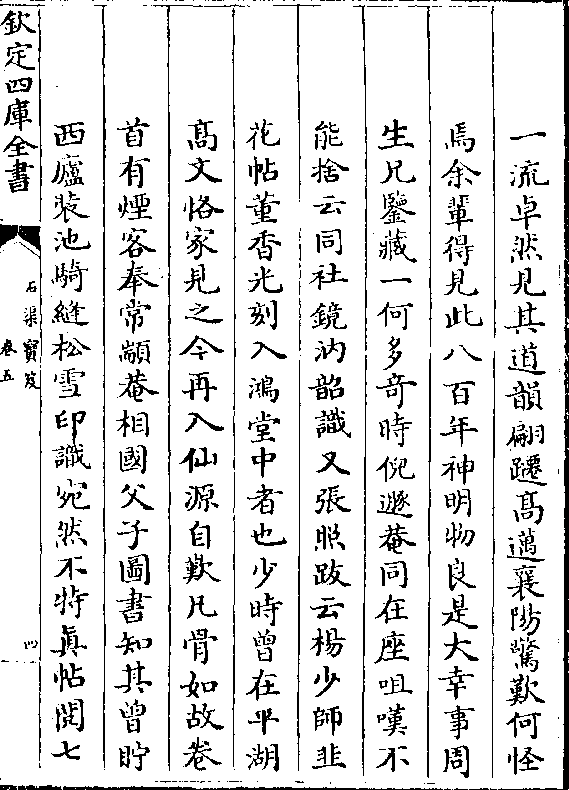 一流卓然見其道韻翩躚髙邁襄陽驚歎何怪
焉余輩得見此八百年神明物良是大幸事周
生兄鑒藏一何多竒時倪遯菴同在座咀嘆不
能捨云同社鏡汭韶識又張照跋云楊少師韭
花帖董香光刻入鴻堂中者也少時曾在平湖
髙文恪家見之今再入仙源自歎凡骨如故卷
首有煙客奉常顓菴相國父子圖書知其曾貯
西廬裝池騎縫松雪印識宛然不特真帖閱七
欽定四庫全書
石渠寶笈
卷五
四